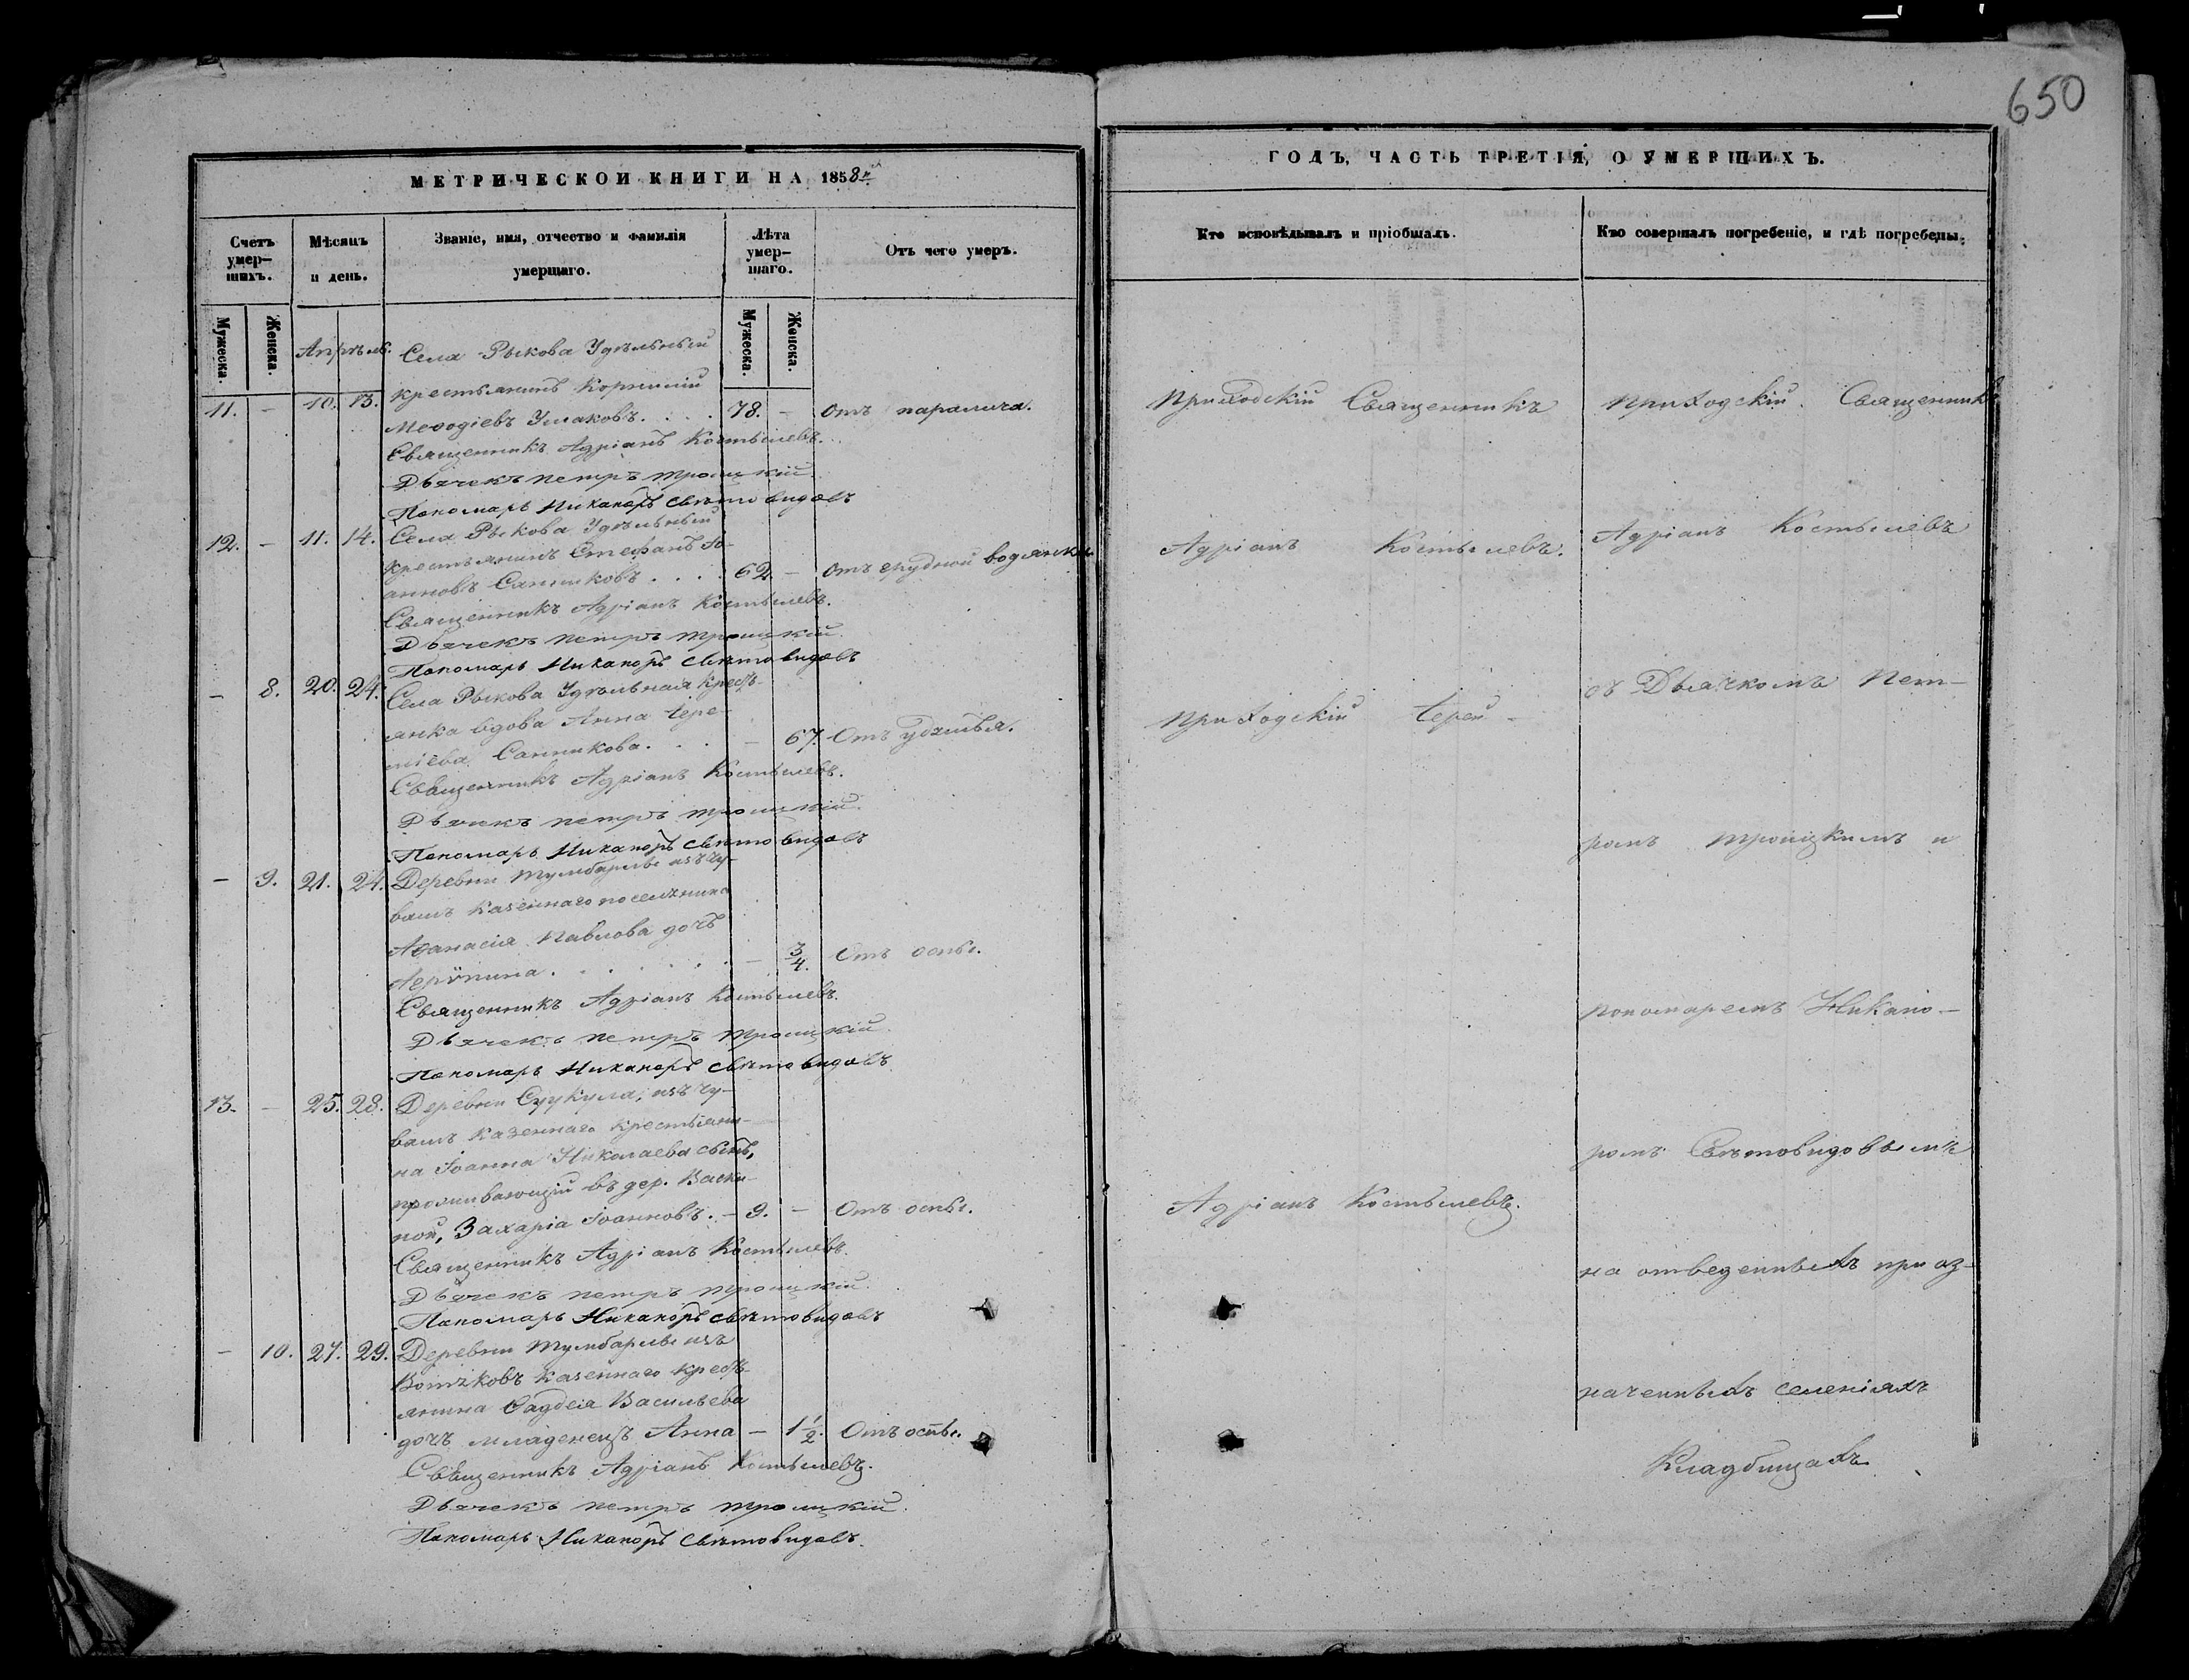 650
МЕТРИЧЕСКОЙ КНИГИ НА 1858й
Счетъ умер-
шихъ.
Мѣсяцъ
и день.
Званіе, имя, отчество и фамилія
умершаго.
Лѣта
умер-
шаго.
Отъ чего умеръ.
Мужеска.
Женска.
Мужеска.
Женска.
Апрѣль.
Села Рыкова Удѣльный
крестьянинъ Корнилій
11. - 10. 13. Меѳодіевъ Ушаковъ. . . . 78. - отъ паралича.
Священникъ Адріанъ Костылевъ.
Дьячекъ Петръ Троицкій.
Пономарь Никаноръ Свѣтовидовъ
12. - 11. 14. Села Рыкова Удѣльный
крестьянинъ Стефанъ Іо-
анновъ Санниковъ . . . . 62. - Отъ грудной водянки
Священникъ Адріанъ Костылевъ.
Дьячекъ Петръ Троицкій.
Пономарь Никаноръ Свѣтовидовъ
- 8. 20. 24. Села Рыкова Удѣльная крест-
янка вдова Анна Іере-
міева Санникова. . . . - 67. Отъ удушья.
Священникъ Адріанъ Костылевъ.
Дьячекъ Петръ Троицкій.
Пономарь Никаноръ Свѣтовидовъ
- 9. 21. 24. Деревни Тумбарлы изъ чу-
вашъ казеннаго поселянина
Аѳанасія Павлова дочь
. . . . . . . - 3/4. Отъ оспы.
Священникъ Адріанъ Костылевъ.
Дьячекъ Петръ Троицкій.
Пономарь Никаноръ Свѣтовидовъ
13. - 25. 28. Деревни изъ чу-
вашъ казеннаго крестьяни-
на Іоанна Николаева сынъ,
проживающій въ дер. Васки-
ной, Захарія Іоанновъ. - 9. - Отъ оспы.
Священникъ Адріанъ Костылевъ.
Дьячекъ Петръ Троицкій.
Пономарь Никаноръ Свѣтовидовъ
- 10. 27. 29. Деревни Тумбарлы изъ
Вотяковъ казеннаго крест-
янина Васильева
дочь младенецъ Анна - 1 1/2. Отъ оспы.
Священникъ Адріанъ Костылевъ.
Дьячекъ Петръ Троицкій.
Пономарь Никаноръ Свѣтовидовъ.
ГОДЪ, ЧАСТЬ ТРЕТІЯ, О УМЕРШИХЪ.
Кто исповѣдывалъ и пріобщалъ.
Приходскій Священникъ
Адріанъ Костылевъ.
Приходскій Іерей
Адріанъ Костылевъ.
Кто совершалъ погребеніе, и гдѣ погребены.
Приходскій Священникъ
Адріанъ Костылевъ
съ Дьячкомъ Пет-
ромъ Троицкимъ и
пономаремъ Никано-
ромъ Свѣтовидовымъ
на отведенныхъ при оз-
наченныхъ селеніяхъ
Кладбищахъ